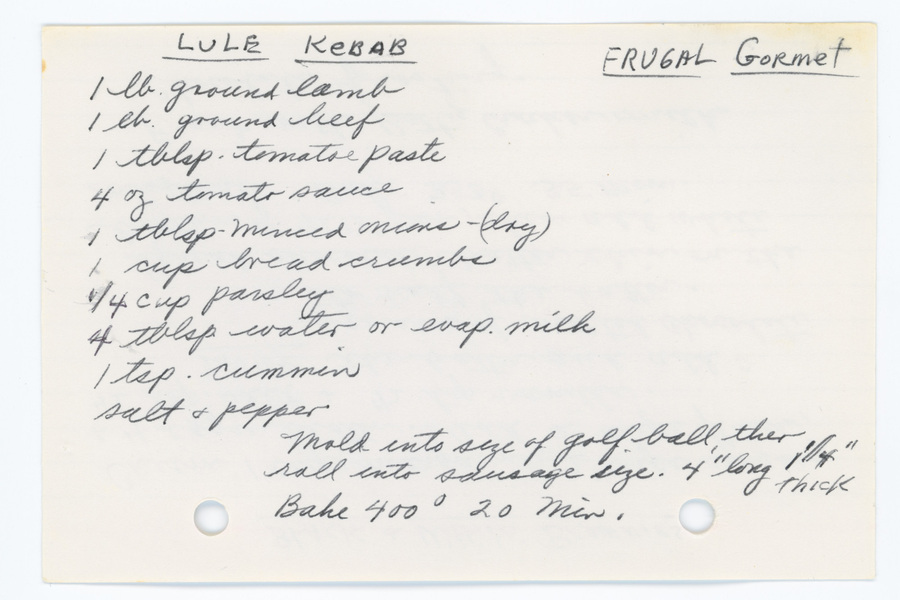 LULE KEBAB
FRUGAL GORMET
1 lb. ground lamb
1 lb. ground beef
1 tblsp. tomatoe paste
4 oz tomato sauce
1 tblsp-minced onions-(dry)
1 cup bread crumbs
1/4 cup parsley
4 tblsp water or evap. milk
1 tsp. cummin
salt & pepper
Mold into size of golf ball, then
roll into sausage size. 4" long 1 1/4"
thick
Bake 400° 20 Min.